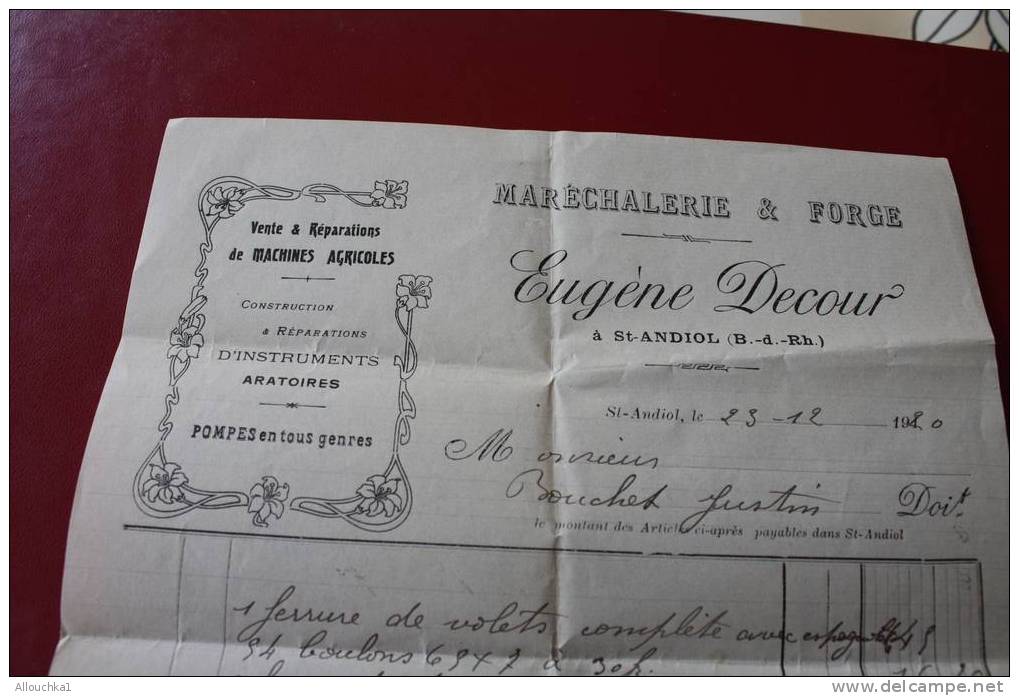 Vente & Réparations
de MACHINES AGRICOLES
CONSTRUCTION
& RÉPARATIONS
D'INSTRUMENTS
ARATOIRES
POMPES en tous genres
MARÉCHALERIE & FORGE
Eugène Decour
à St-ANDIOL (B.-d.-Rh.)
St-Andiol, le 23-12 19 0
Monsieur
Bouchet Justin Doit
le montant des Articles ci-après payables dans St-Andiol
1 ferrure de volets complète avec
94 boulons à
Allouchka1
www.delcampe.net